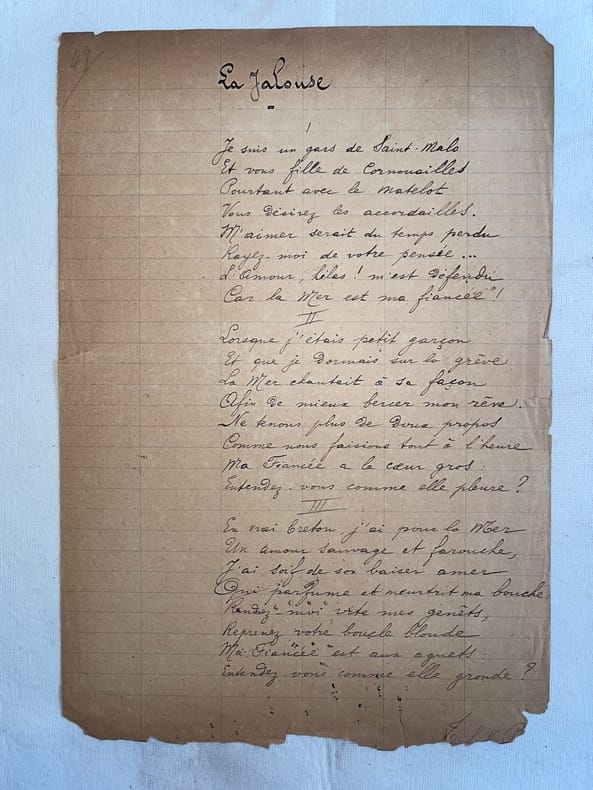 49
La Jalouse
I
Je suis un gars de Saint-Malo
Et vous fille de Cornouailles
Pourtant avec le Matelot
Vous désirez les accordailles.
M'aimer serait du temps perdu
Rayez-moi de votre pensée...
L'Amour, hélas ! m'est Défendu
Car la Mer est ma fiancée !
II
Lorsque j'étais petit garçon
Et que je Dormais sur la grève
La Mer chantait à sa façon
Afin De mieux bercer mon rêve.
Ne tenons plus de Doux propos
Comme nous faisions tout à l'heure
Ma Fiancée a le cœur gros :
Entendez-vous comme elle pleure ?
III
En vrai breton, j'ai pour la Mer
Un amour sauvage et farouche,
J'ai soif de son baiser amer
Qui parfume et meurtrit ma bouche
Rendez-moi vite mes genêts,
Reprenez votre boucle blonde
Ma Fiancée est aux aguets :
Entendez vous comme elle gronde ?